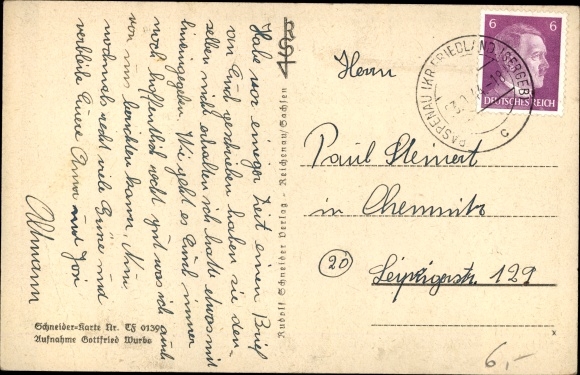 Habe vor einiger Zeit einen Brief
von Euch geschrieben haben sie den-
selben nicht erhalten ich hatte etwas mit
hineingegeben. Wie geht es Euch immer
noch hoffentlich recht gut was ich auch
von uns berichten kann. Nun
nochmals recht viele Grüße und
verbleibe Eure Anna und
Altmann
Schneider-Karte Nr. CF 0139
Aufnahme Gottfried Wurbs
Rudolf Schneider Verlag - Reichenau/Sachsen
RSV
6 6
DEUTSCHES REICH
RASPENAU (KR FRIEDLAND ISERGEB)
c
Herrn
Paul Steinert
in Chemnitz
(20) Leipzigerstr. 129
x
6,-